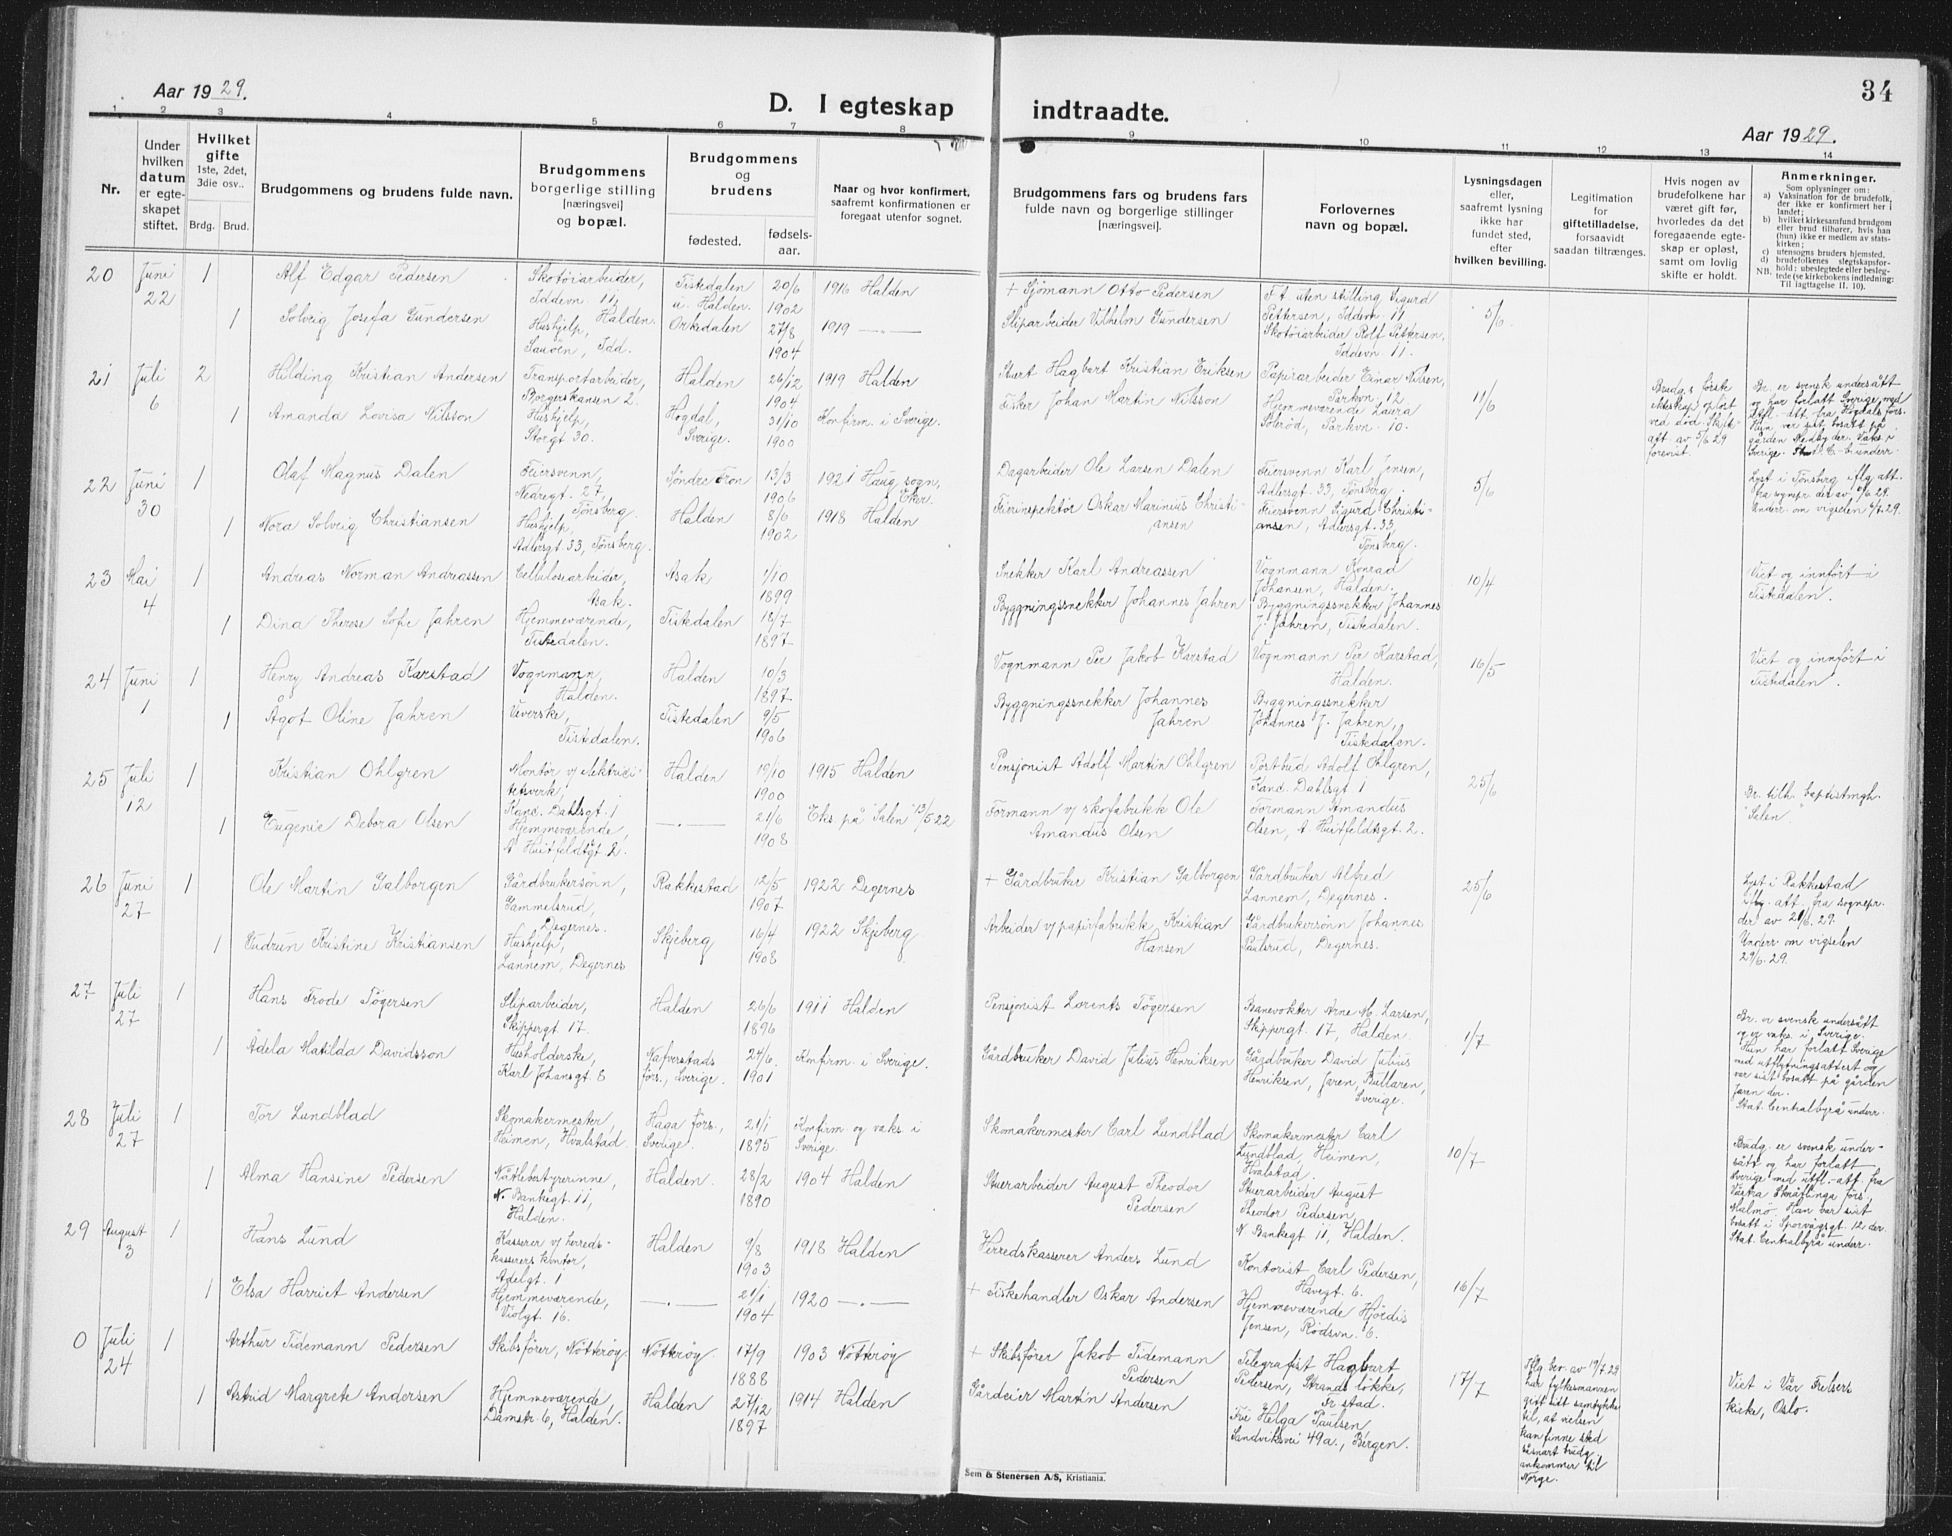 Aar 1929.
D. I egteskap indtraadte.
34
Aar 1929.
1 2 3 4 5 6 7 8 9 10 11 12 13 14
Nr.
Under
hvilken
datum
er egte-
skapet
stiftet.
Hvilket
gifte
1ste, 2det,
3die osv..
Brdg. Brud.
Brudgommens og brudens fulde navn.
Brudgommens
borgerlige stilling
[næringsvei]
og bopæl.
Brudgommens
og
brudens
fødested.
fødsels-
aar.
Naar og hvor konfirmert,
saafremt konfirmationen er
foregaat utenfor sognet.
Brudgommens fars og brudens fars
fulde navn og borgerlige stillinger
[næringsvei].
Forlovernes
navn og bopæl.
Lysningsdagen
eller,
saafremt lysning
ikke har
fundet sted,
efter
hvilken bevilling.
Legitimation
for
giftetilladelse,
forsaavidt
saadan tiltrænges.
Hvis nogen av
brudefolkene har
været gift før,
hvorledes da det
foregaaende egte-
skap er opløst,
samt om lovlig
skifte er holdt.
Anmerkninger.
Som oplysninger om:
a) Vaksination for de brudefolk,
der ikke er konfirmert her i
landet;
b) hvilket kirkesamfund brudgom
eller brud tilhører, hvis han
(hun) ikke er medlem av stats-
kirken;
c) utensogns bruders hjemsted.
d) brudefolkenes slegtskapsfor-
hold: ubeslegtede eller besleg-
tede (se kirkebokens indledning:
NB. Til iagttagelse II. 10).
20 Juni 22 1
Alf Edgar Pedersen
Skotøiarbeider,
Iddevn. 11,
Halden.
Tistedalen
u. Halden.
20/6
1902
1916 Halden
+ Sjømann Otto Pedersen
F. t. uten stilling Sigurd
Pettersen, Iddevn. 11
5/6.
1 Solveig Josefa Gundersen
Hushjelp,
Sauøen, Idd.
Orkedalen
27/8
1904
1919 —„—
Sliparbeider Vilhelm Gundersen
Skotøiarbeider Rolf Pettersen,
Iddevn. 11.
21 Juli 6 2
Hilding Kristian Andersen
Transportarbeider,
Borgerskansen 2.
Halden
26/12
1904
1919 Halden
Stuert Hagbart Kristian Eriksen
Papirarbeider Einar Nilsen,
Parkvn. 12.
11/6
Brudg.s første
ekteskap opløst
ved død. Skift-
att. av 5/6 29
forevist.
Br. er svensk undersått
og har forlatt Sverige med
utfl.-att. fra Hogdals førs.
Hun var sist bosatt på
gården Nedby der. Vaks. i
Sverige. Stat. C-b. underr.
1 Amanda Lovisa Nilsson
Hushjelp,
Storgt 30.
Hogdal,
Sverige.
31/10
1900
Konfirm. i Sverige.
Fisker Johan Martin Nilsson
Hjemmeværende Laura
Solerød, Parkvn. 10.
22 Juni 30 1
Olaf Magnus Dalen
Feiersvenn,
Nedregt. 27,
Tønsberg
Søndre Fron
13/3
1906
1921 Haug sogn,
Eker.
Dagarbeider Ole Larsen Dalen
Feiersvenn Karl Jensen,
Adlersgt. 33, Tønsberg.
5/6
Lyst i Tønsberg iflg att.
fra sognepr. der av
Underr. om vigselen
1 Nora Solveig Christiansen
Hushjelp,
Adlersgt 33, Tønsberg.
Halden
8/6
1902
1918 Halden
Feirinspektør Oskar Marinius Christi-
ansen
Feiersvenn Sigurd Christi-
ansen, Adlersgt. 33,
Tønsberg.
23 Mai 4 1
Andreas Norman Andreassen
Cellulosearbeider,
Asak.
Asak
1/10
1899
Snekker Karl Andreassen
Vognmann Konrad
Johansen, Halden.
10/4
Viet og innført i
Tistedalen.
1 Dina Therese Sofie Jahren
Hjemmeværende,
Tistedalen.
Tistedalen
18/7
1897
Byggningssnekker Johannes Jahren
Byggningssnekker Johannes
J. Jahren, Tistedalen.
24 Juni 1 1
Henry Andreas Karstad
Vognmann,
Halden.
Halden
10/3
1897
Vognmann Per Jakob Karstad
Vognmann Per Karstad,
Halden.
16/5
Viet og innført i
Tistedalen.
1 Ågot Oline Jahren
Veverske,
Tistedalen.
Tistedalen
9/5
1906
Byggningssnekker Johannes
Jahren
Byggningssnekker
Johannes J. Jahren,
Tistedalen.
25 Juli 12 1
Kristian Ohlgren
Montør v/ elektrisi-
tetsverk,
Kanc. Dahlsgt. 1
Halden
19/10
1900
1915 Halden
Pensjonist Adolf Martin Ohlgren
Postbud Adolf Ohlgren,
Kanc. Dahlsgt 1
25/6
Br. tilh. baptistmgh.
"Salen".
1 Eugenie Debora Olsen
Hjemmeværende,
A Huitfeldtsgt 2.
—„—
21/6
1908
Eks. på "Salen" 13/5 22
Formann v/ skofabrikk Ole
Amandus Olsen
Formann Amandus
Olsen, A Huitfeldtsgt. 2.
26 Juni 27 1
Ole Martin Galborgen
Gårdbrukersønn,
Gammelsrud,
Degernes.
Rakkestad
12/5
1907
1922 Degernes
+ Gårdbruker Kristian Galborgen
Gårdbruker Alfred
Lannem, Degernes.
25/6
Lyst i Rakkestad
iflg. att. fra sognepr.
der av 21/6 29.
Underr. om vigselen
29/6. 29.
1 Gudrun Kristine Kristiansen
Hushjelp,
Lannem, Degernes
Skjeberg
16/4
1908
1922 Skjeberg
Arbeider v/ papirfabrikk Kristian
Hansen
Gårdbrukersønn Johannes
Paulsrud, Degernes.
27 Juli 27 1
Hans Frode Tøgersen
Sliparbeider,
Skippergt 17.
Halden
26/6
1896
1911 Halden
Pensjonist Lorents Tøgersen
Banevokter Arne M. Larsen,
Skippergt. 17, Halden.
1/7
Br. er svensk undersått
og er vaks. i Sverige.
Hun har forlatt Sverige
med utflytningsattest og
var sist bosatt på gården
Jaren der.
Stat. Centralbyrå underr.
1 Ådela Matilda Davidsson
Husholderske,
Karl Johansgt 8
Nafverstads
førs., Sverige.
24/6
1901
Konfirm. i Sverige.
Gårdbruker David Julius Henriksen
Gårdbruker David Julius
Henriksen, Jaren, Bullaren,
Sverige.
28 Juli 27 1
Tor Lundblad
Skomakermester,
Heimen, Hvalstad.
Haga førs.,
Sverige.
21/1
1895
Konfirm og vaks. i
Sverige.
Skomakermester Carl Lundblad
Skomakermester Carl
Lundblad, Heimen,
Hvalstad.
10/7
Brudg. er svensk under-
sått og har forlatt
Sverige med utfl.-att. fra
Västra Skräflinga førs,
Malmø. Han var sist
bosatt i Sporvägsgt. 12 der.
Stat. Centralbyrå underr.
1 Alma Hansine Pedersen
Nåtlebestyrerinne,
N. Bankegt. 11,
Halden.
Halden.
28/2
1890
1904 Halden
Stuerarbeider August Theodor
Pedersen
Stuerarbeider August
Theodor Pedersen,
N. Bankegt 11, Halden.
29 August 3 1
Hans Lund
Kasserer v/ herreds-
kasserers kontor,
Adelgt. 1
Halden
9/8
1903
1918 Halden
Herredskasserer Anders Lund
Kontorist Carl Pedersen,
Havegt. 6.
16/7
1 Elsa Harriet Andersen
Hjemmeværende,
Violgt. 16.
—„—
21/1
1904
1920 —„—
+ Fiskehandler Oskar Andersen
Hjemmeværende Hjørdis
Jensen, Rødsvn. 6.
0 Juli 24 1
Arthur Tidemann Pedersen
Skibsfører, Nøtterøy
Nøtterøy.
17/9
1888
1903 Nøtterøy
+ Skibsfører Jakob Tidemann
Pedersen
Telegrafist Hagbart
Pedersen, Strands løkke,
Fr stad.
17/7
Iflg bev. av 19/7 29
har fylkesmannen
gitt sitt samtykke
til, at vielsen
kan finne sted
såsnart brudg.
ankommer til
Norge.
Viet i Vår Frelsers
kirke, Oslo.
1 Astrid Margrete Andersen
Hjemmeværende,
Damstr. 6, Halden.
Halden
27/12
1897
1914 Halden
Gårdeier Martin Andersen
Frk Helga Paulsen
Sandviksvei 49a., Bergen.
Sem & Stenersen A/S, Kristiania.